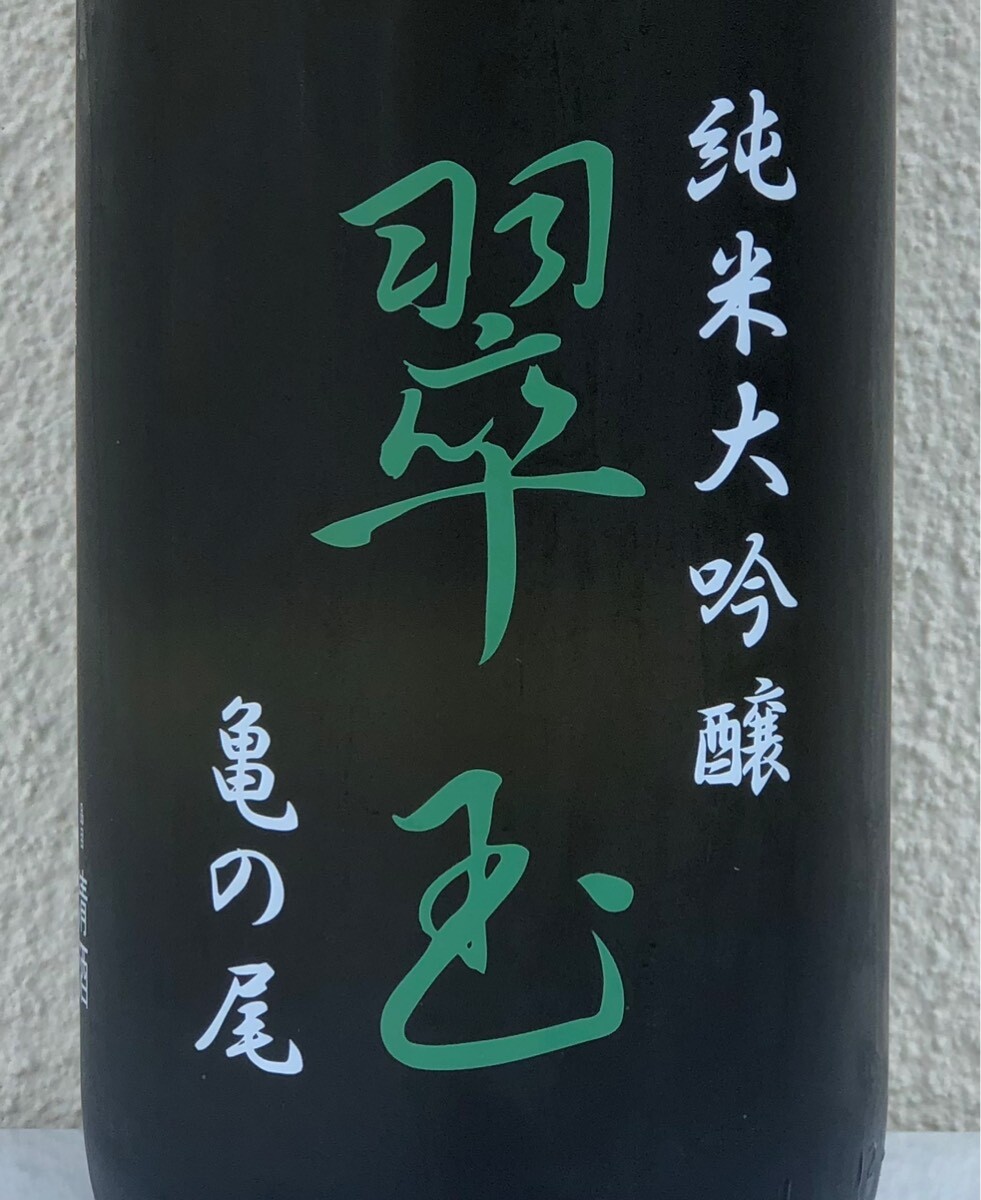 純米大吟醸
翠玉
亀の尾